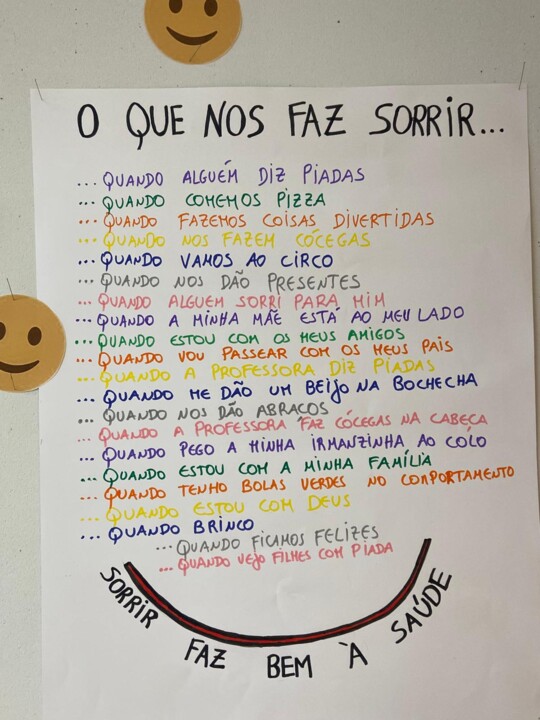 O QUE NOS FAZ SORRIR...
...QUANDO ALGUÉM DIZ PIADAS
...QUANDO COMEMOS PIZZA
...QUANDO FAZEMOS COISAS DIVERTIDAS
...QUANDO NOS FAZEM CÓCEGAS
...QUANDO VAMOS AO CIRCO
...QUANDO NOS DÃO PRESENTES
...QUANDO ALGUEM SORRI PARA MIM
...QUANDO A MINHA MÃE ESTÁ AO MEU LADO
...QUANDO ESTOU COM OS MEUS AMIGOS
...QUANDO VOU PASSEAR COM OS MEUS PAIS
...QUANDO A PROFESSORA DIZ PIADAS
...QUANDO ME DÃO UM BEIJO NA BOCHECHA
...QUANDO NOS DÃO ABRAÇOS
...QUANDO A PROFESSORA FAZ CÓCEGAS NA CABEÇA
...QUANDO PEGO A MINHA IRMANZINHA AO COLO
...QUANDO ESTOU COM A MINHA FAMÍLIA
...QUANDO TENHO BOLAS VERDES NO COMPORTAMENTO
...QUANDO ESTOU COM DEUS
...QUANDO BRINCO
...QUANDO FICAMOS FELIZES
...QUANDO VEJO FILMES COM PIADA
SORRIR FAZ BEM À SAÚDE